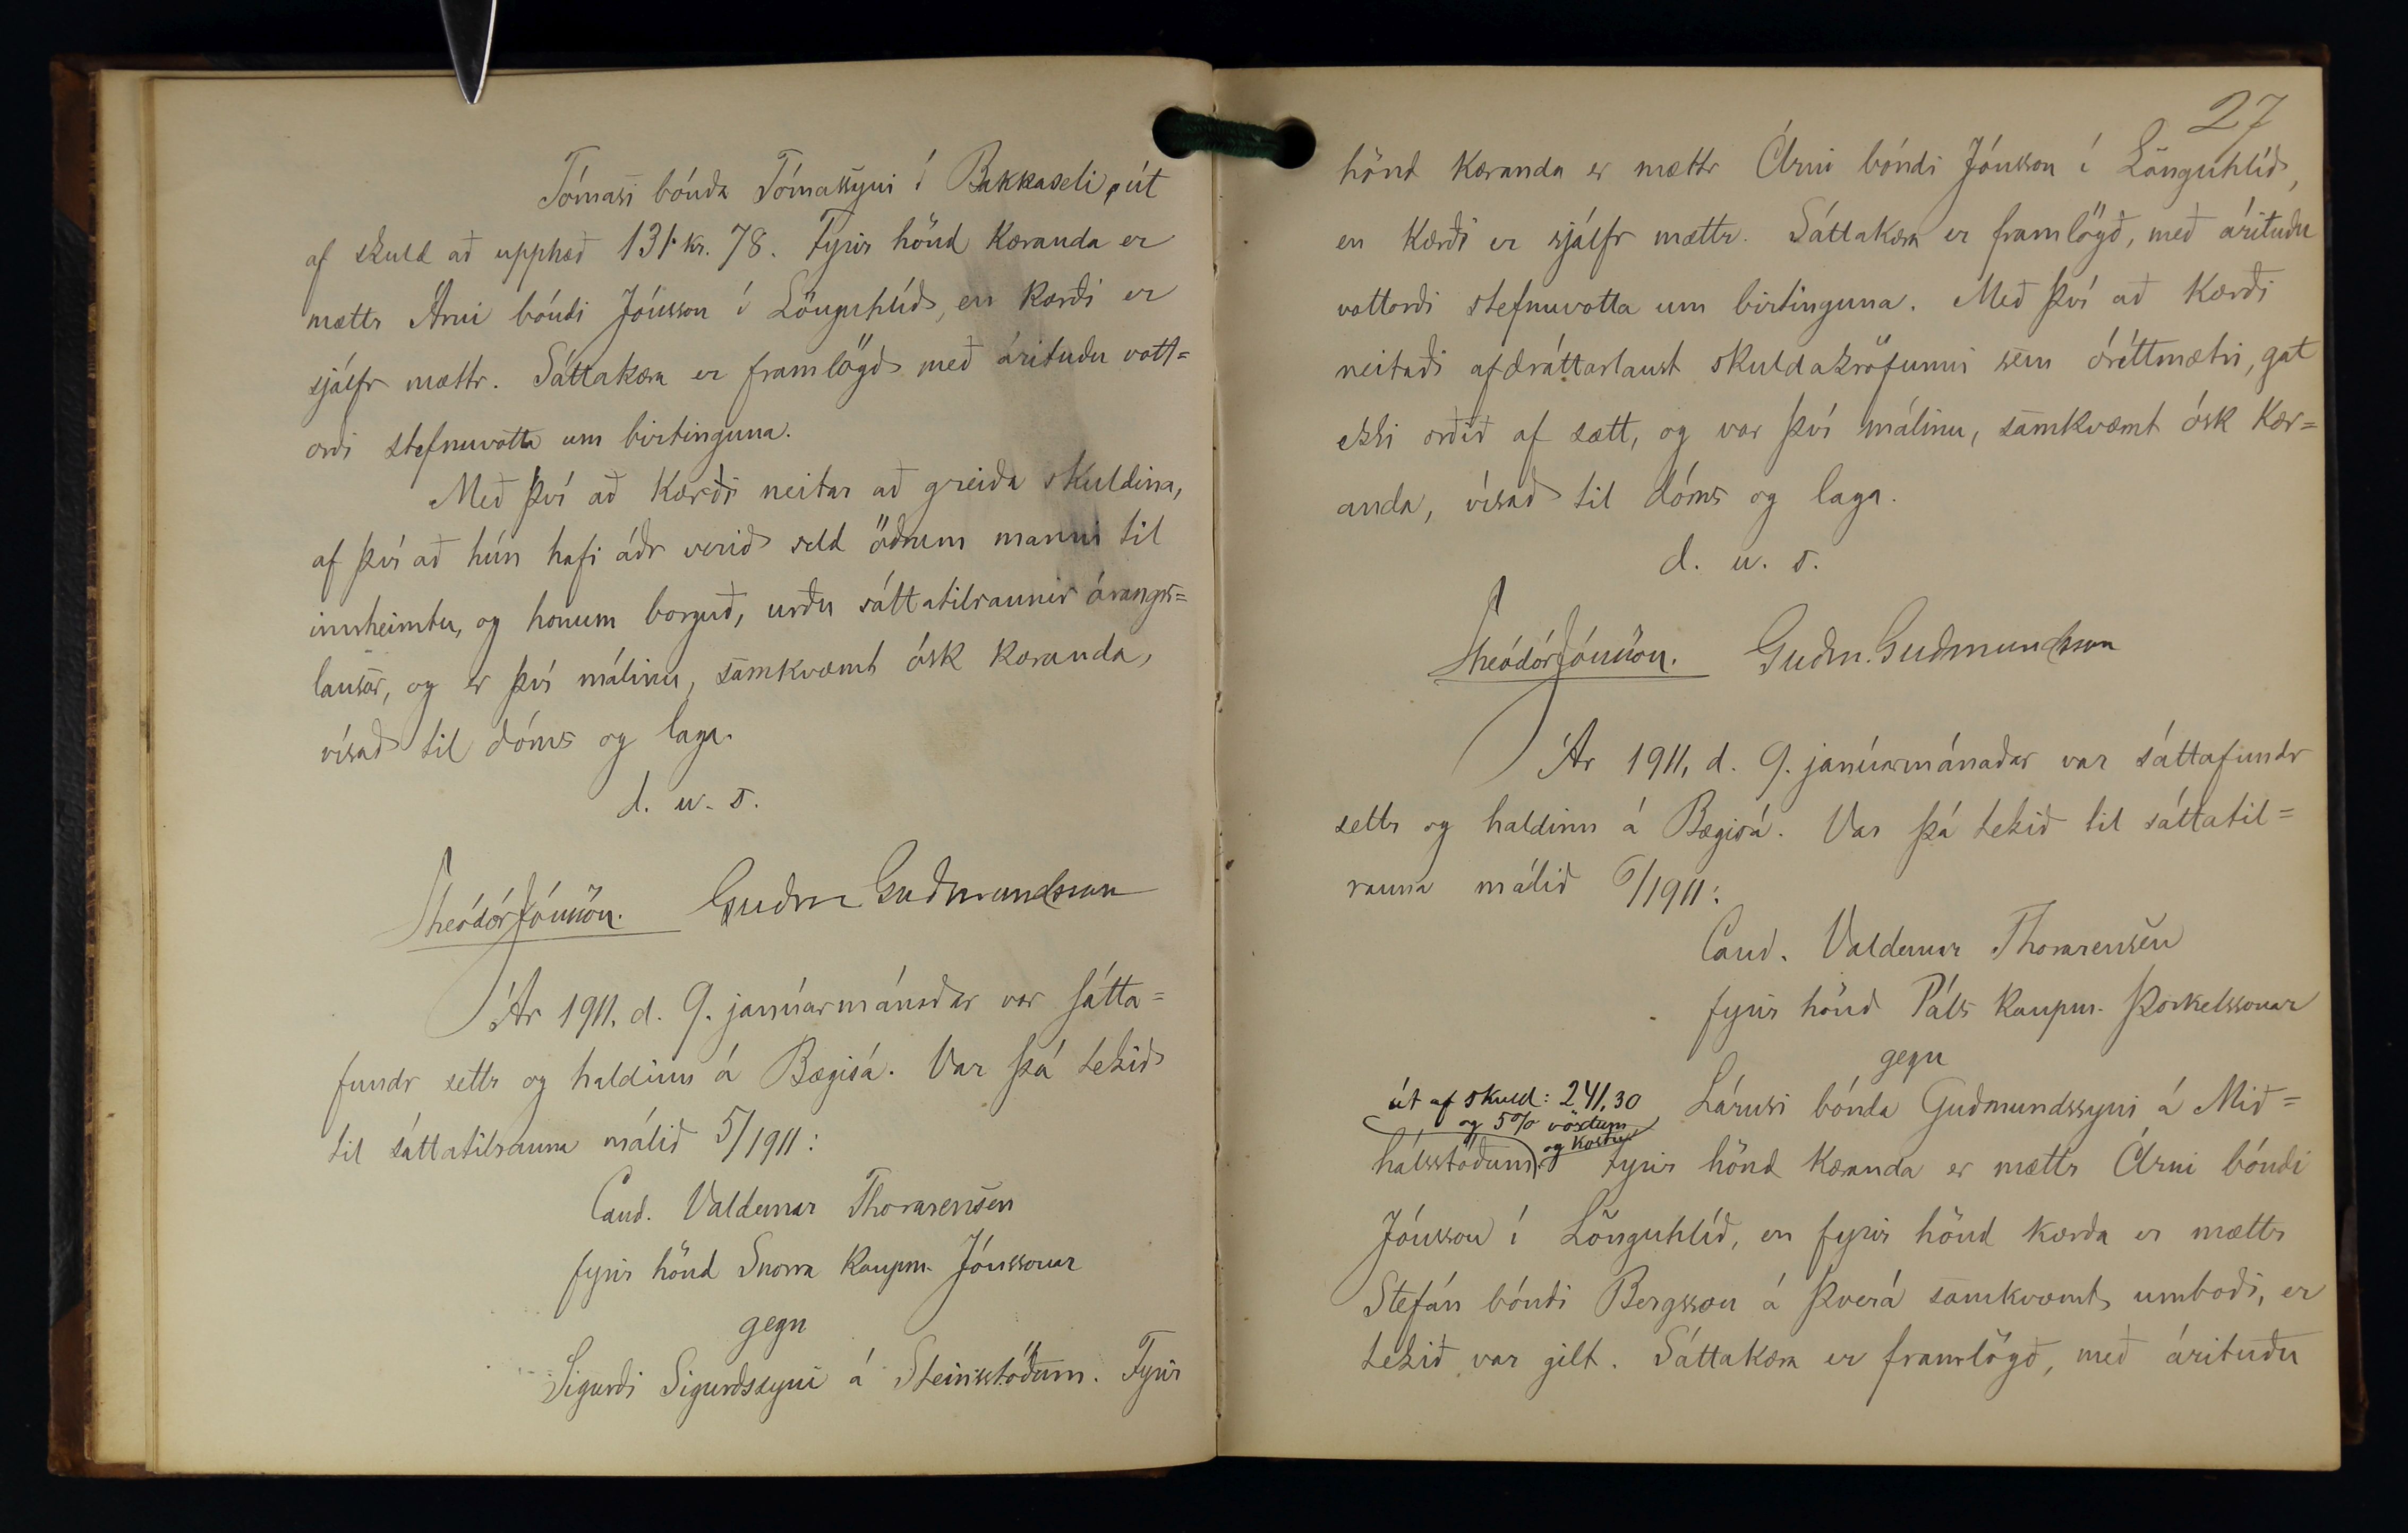 Tómasi bónda Tómassyni í Bakkaseli, út
af skuld að upphæð 131 kr. 78. Fyrir hönd kæranda er
mættr Árni bóndi Jónsson í Lönguhlíð, en kærði er
sjálfr mættr. Sáttakæra er framlögð með árituðu vott=
orði stefnuvotta um birtinguna.
Með því að kærði neitar að greiða skuldina,
af því að hún hafi áðr verið seld öðrum manni til
innheimtu, og honum borguð, urðu sáttatilraunir árangrs=
lausar, og er því málinu, samkvæmt ósk kæranda,
vísað til dóms og laga.
d. u. s.
Theódór Jónsson. Guðm Guðmundsson
Ár 1911, d. 9. janúarmánaðar var sátta=
fundr settr og haldinn á Bægisá. Var þá tekið
til sáttatilrauna málið 5/1911:
Cand. Valdemar Thorarensen
fyrir hönd Snorra kaupm. Jónssonar
gegn
Sigurði Sigurðssyni á Steinsstöðum. Fyrir
27
hönd kæranda er mættr Árni bóndi Jónsson í Lönguhlíð,
en kærði er sjálfr mættr. Sáttakæra er framlögð, með árituðu
vottorði stefnuvotta um birtinguna. Með því að kærði
neitaði afdráttarlaust skuldakröfunni sem óréttmætri, gat
ekki orðið af sætt, og var því málinu, samkvæmt ósk kær=
anda, vísað til dóms og laga.
d. u. s.
Theódór Jónsson. Guðm. Guðmundsson
Ár 1911, d. 9. janúarmánaðar var sáttafundr
settr og haldinn á Bægisá. Var þá tekið til sáttatil=
rauna málið 6/1911:
Cand. Valdemar Thorarensen
fyrir hönd Páls kaupm. Þorkelssonar
gegn
út af skuld: 241,30 Lárusi bónda Guðmundssyni á Mið=
og 5% vöxtum
og kostn.
hálsstöðum. Fyrir hönd kæranda er mættr Árni bóndi
Jónsson í Lönguhlíð, en fyrir hönd kærða er mættr
Stefán bóndi Bergsson á Þverá samkvæmt umboði, er
tekið var gilt. Sáttakæra er framlögð, með árituðu